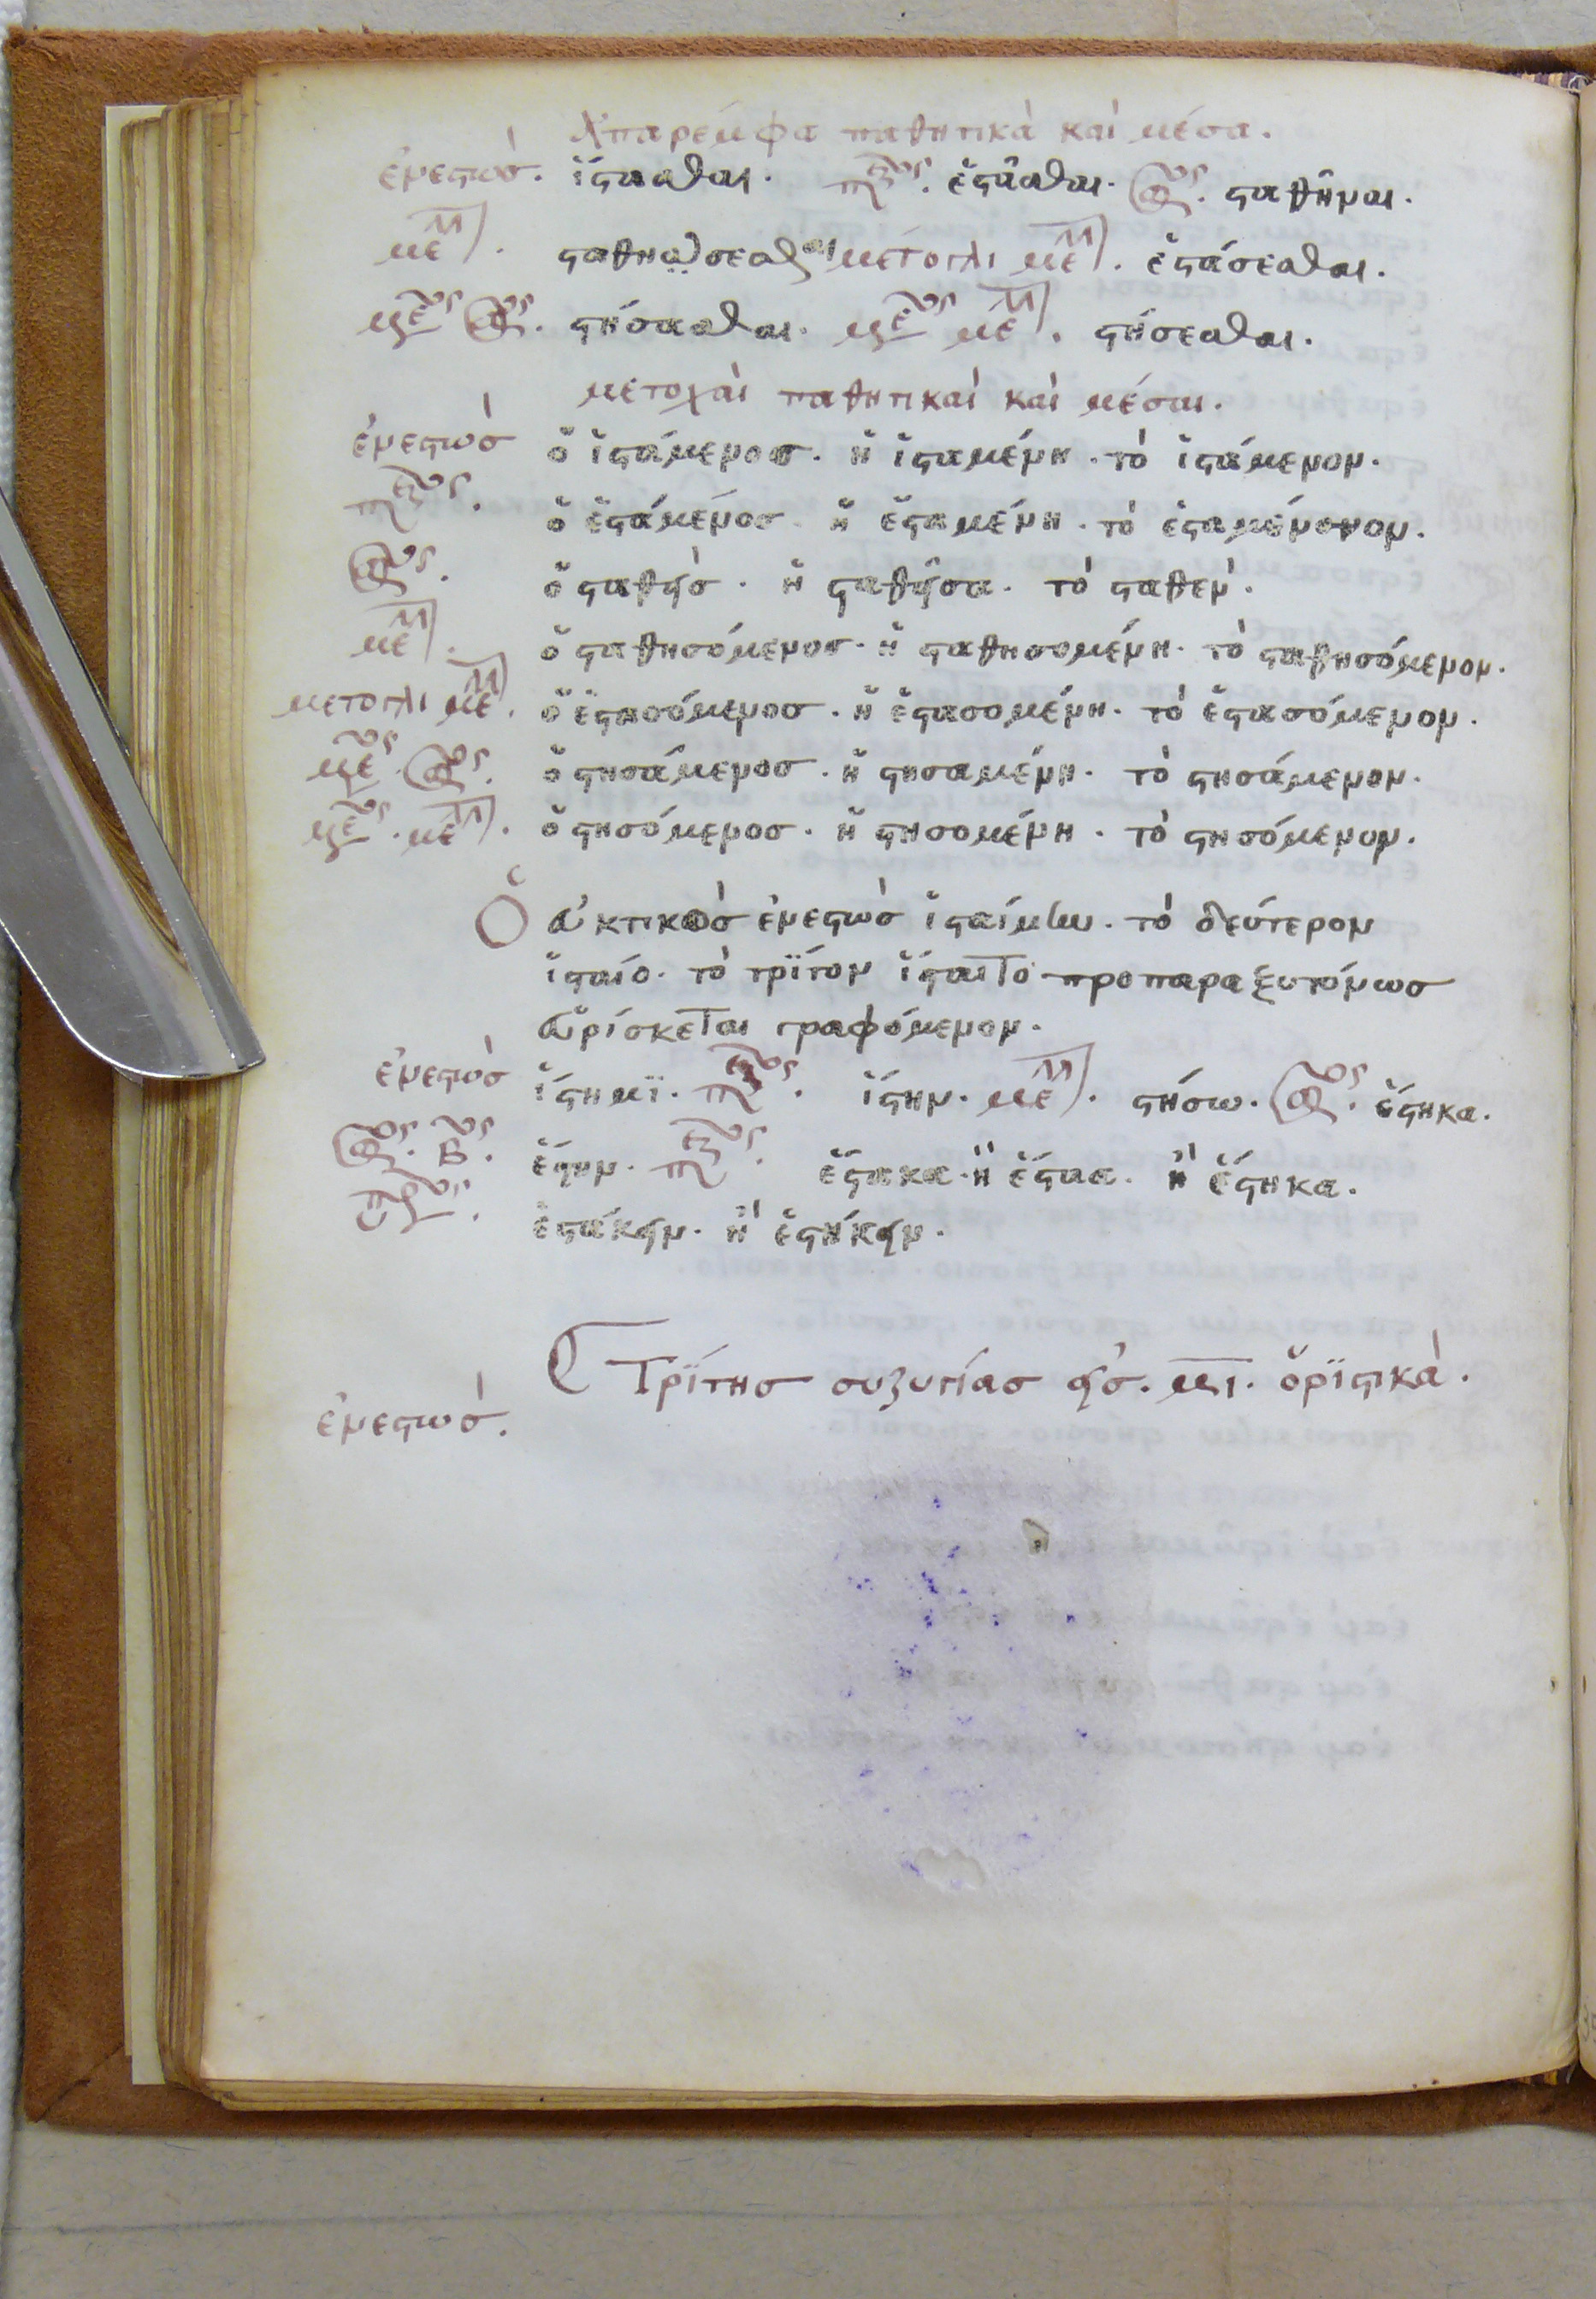 Ἀπαρέμφα παθητικὰ καὶ μέσα.
ἐνεστώσ. ἵστασθαι. ἑστᾶσθαι. σταθῆναι.
μέλλ. σταθήσεσθαι μετολι μέλλ. ἑστάσεσθαι.
στήσασθαι. μέλλ. στήσεσθαι.
μετοχαὶ παθητικαὶ καὶ μέσαι.
ἐνεστὼσ ὁ ἱστάμενοσ. ἡ ἱσταμένη. τὸ ἱστάμενον.
ὁ ἑστάμένοσ. ἡ ἑσταμένη. τὸ ἑσταμένονον.
ὁ σταθεὶσ. ἡ σταθεῖσα. τὸ σταθεν.
μέλλ. ὁ σταθησόμενοσ. ἡ σταθησομένη. τὸ σταθησόμενον.
μετολι μέλλ. ὁ ἑστασόμενοσ. ἡ ἑστασομένη. τὸ ἑστασόμενον.
ὁ στησάμενοσ. ἡ στησαμένη. τὸ στησάμενον.
μέλλ. ὁ στησόμενοσ. ἡ στησομένη. τὸ στησόμενον.
Ὁ εὐκτικὸσ ἐνεστὼσ ἱσταίμην. τὸ δεύτερον
ἱσταίο. τὸ τρίτον ἵσταιτο προπαραξυτόνωσ
εὑρίσκεται γραφόμενον.
ἐνεστὼσ ἵστημϊ. ἵστην. μέλλ. στήσω. ἔστηκα.
β. ἔστην. ἕστακα. ἢ ἕσταα. ἢ ἕστηκα.
ἑστάκειν. ἢ ἑστήκειν.
Τρίτησ συζυγίασ εἰσ. μι. ὁρϊστικὰ.
ἐνεστώσ.